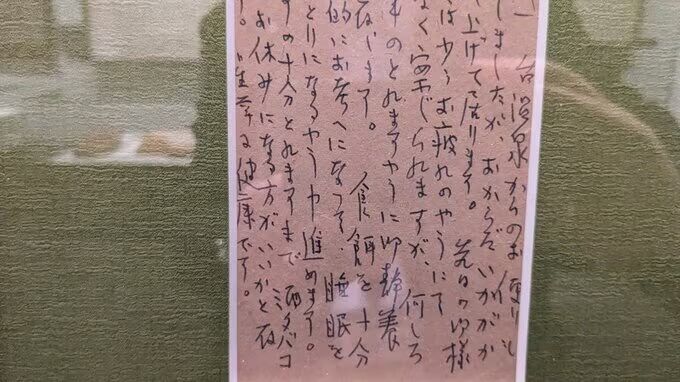 台温泉からのお便りも
しましたが おからだいかがか
上げて居ります。 先日の御様
は少うお疲れのやうにて
なく案じられますが、何しろ
のとれますやうに御静養
存じます。 食餌を十分
的にお考へになって 睡眠を
とりになるやう 進めます。
の十分とれますまで 酒タバコ
お休みになる方がいいかと存
す。 健康です。